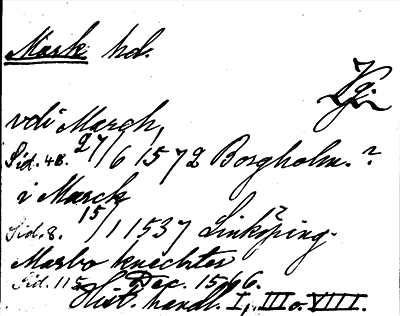 Mark hd.
Vg.
vdi March,
Sid. 48. 27/6 1572 Borgholm. ?
i Marck
Sid. 8. 15/1 1537 Linköping. ?
Marbo knechter
Sid. 115. Dec. 1566.
Hist. handl. I, III o. VIII.